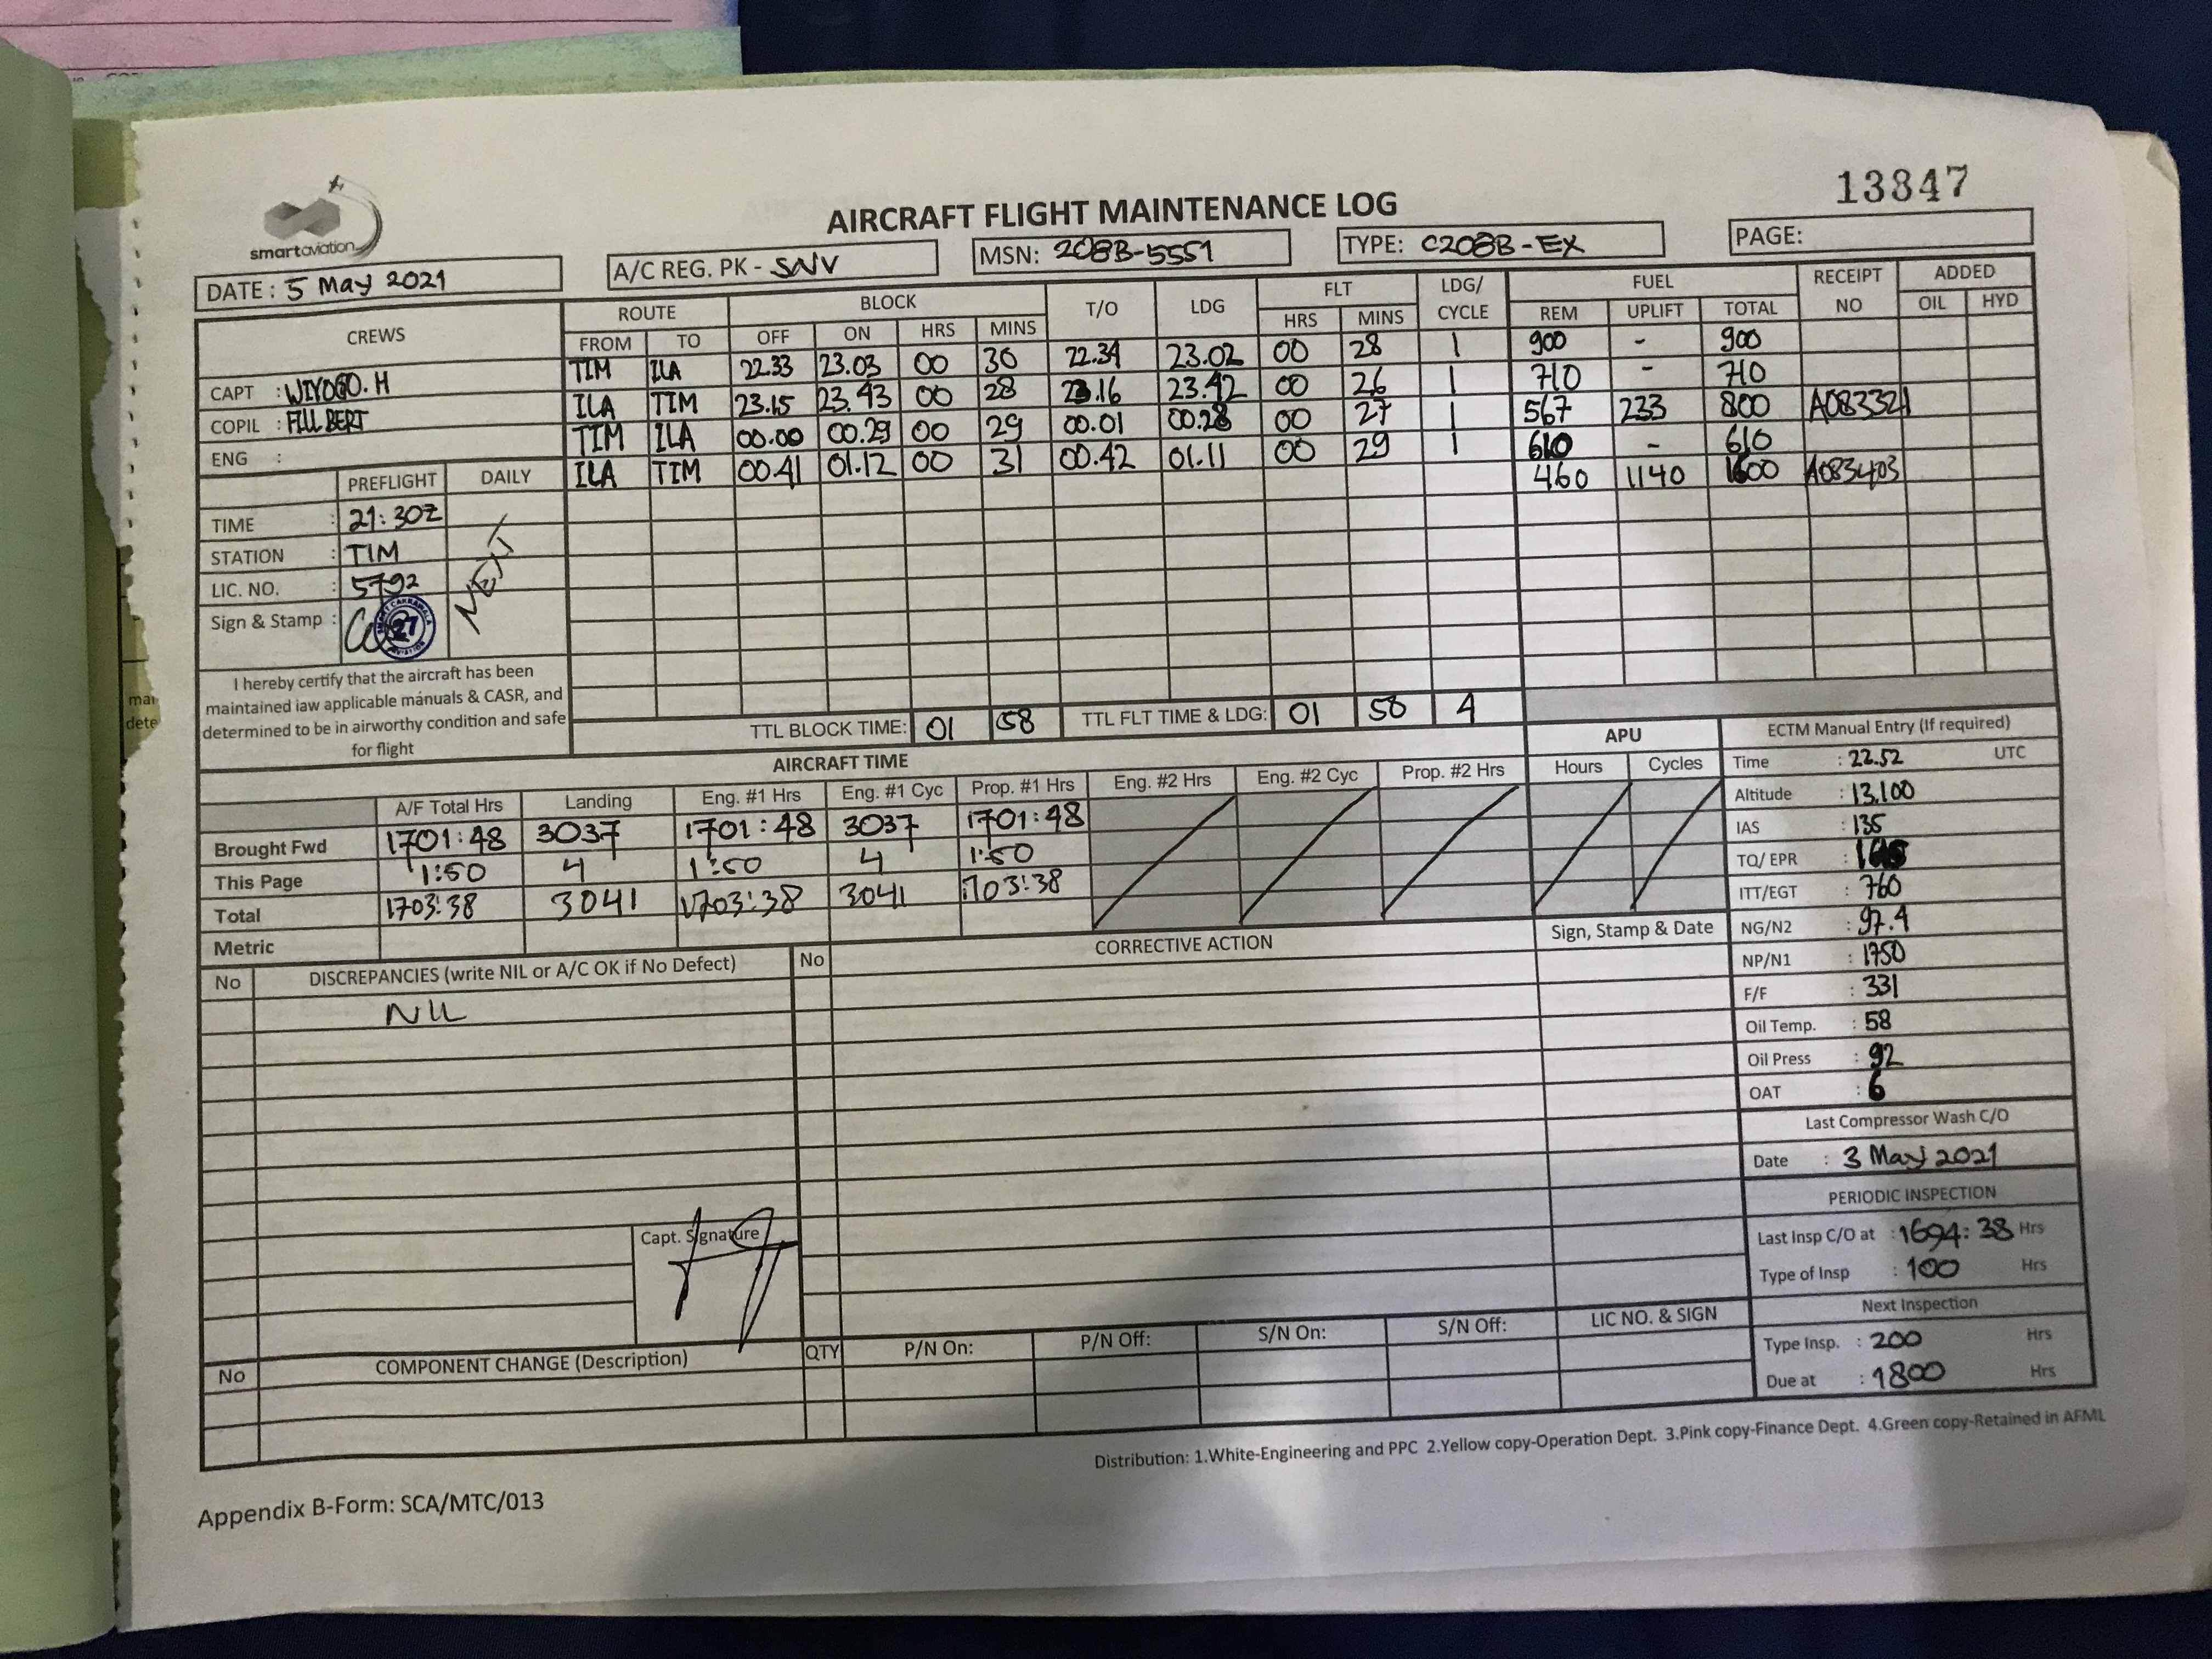 13847
smartaviation
AIRCRAFT FLIGHT MAINTENANCE LOG
DATE : 5 May 2021
A/C REG. PK - SNV
MSN: 208B-5551
TYPE: C208B-EX
PAGE:
CREWS ROUTE BLOCK T/O LDG FLT LDG/ CYCLE FUEL RECEIPT NO ADDED
FROM TO OFF ON HRS MINS HRS MINS REM UPLIFT TOTAL OIL HYD
TIM ILA 22.33 23.03 00 30 22.34 23.02 00 28 1 900 - 900
ILA TIM 23.15 23.43 00 28 23.16 23.42 00 26 1 710 - 710
TIM ILA 00.00 00.29 00 29 00.01 00.28 00 27 1 567 233 800 A083321
ILA TIM 00.41 01.12 00 31 00.42 01.11 00 29 1 610 - 610
460 1140 1600 A083403
CAPT : WIYOGO. H
COPIL : FILLBERT
ENG :
PREFLIGHT DAILY
TIME : 21:30Z
STATION : TIM
LIC. NO. : 5792
Sign & Stamp :
27
NEXT
I hereby certify that the aircraft has been
maintained iaw applicable manuals & CASR, and
determined to be in airworthy condition and safe
for flight
TTL BLOCK TIME: 01 58 TTL FLT TIME & LDG: 01 50 4
AIRCRAFT TIME APU
A/F Total Hrs Landing Eng. #1 Hrs Eng. #1 Cyc Prop. #1 Hrs Eng. #2 Hrs Eng. #2 Cyc Prop. #2 Hrs Hours Cycles
Brought Fwd 1701:48 3037 1701:48 3037 1701:48
This Page 1:50 4 1:50 4 1:50
Total 1703:38 3041 1703:38 3041 1703:38
Metric
No DISCREPANCIES (write NIL or A/C OK if No Defect) No CORRECTIVE ACTION Sign, Stamp & Date
NIL
Capt. Signature
No COMPONENT CHANGE (Description) QTY P/N On: P/N Off: S/N On: S/N Off: LIC NO. & SIGN
ECTM Manual Entry (If required)
Time : 22.52 UTC
Altitude : 13,100
IAS : 135
TQ/ EPR :
ITT/EGT : 760
NG/N2 : 97.4
NP/N1 : 1750
F/F : 331
Oil Temp. : 58
Oil Press : 92
OAT : 6
Last Compressor Wash C/O
Date : 3 May 2021
PERIODIC INSPECTION
Last Insp C/O at : 1694:38 Hrs
Type of Insp : 100 Hrs
Next Inspection
Type Insp. : 200 Hrs
Due at : 1800 Hrs
Distribution: 1.White-Engineering and PPC 2.Yellow copy-Operation Dept. 3.Pink copy-Finance Dept. 4.Green copy-Retained in AFML
Appendix B-Form: SCA/MTC/013